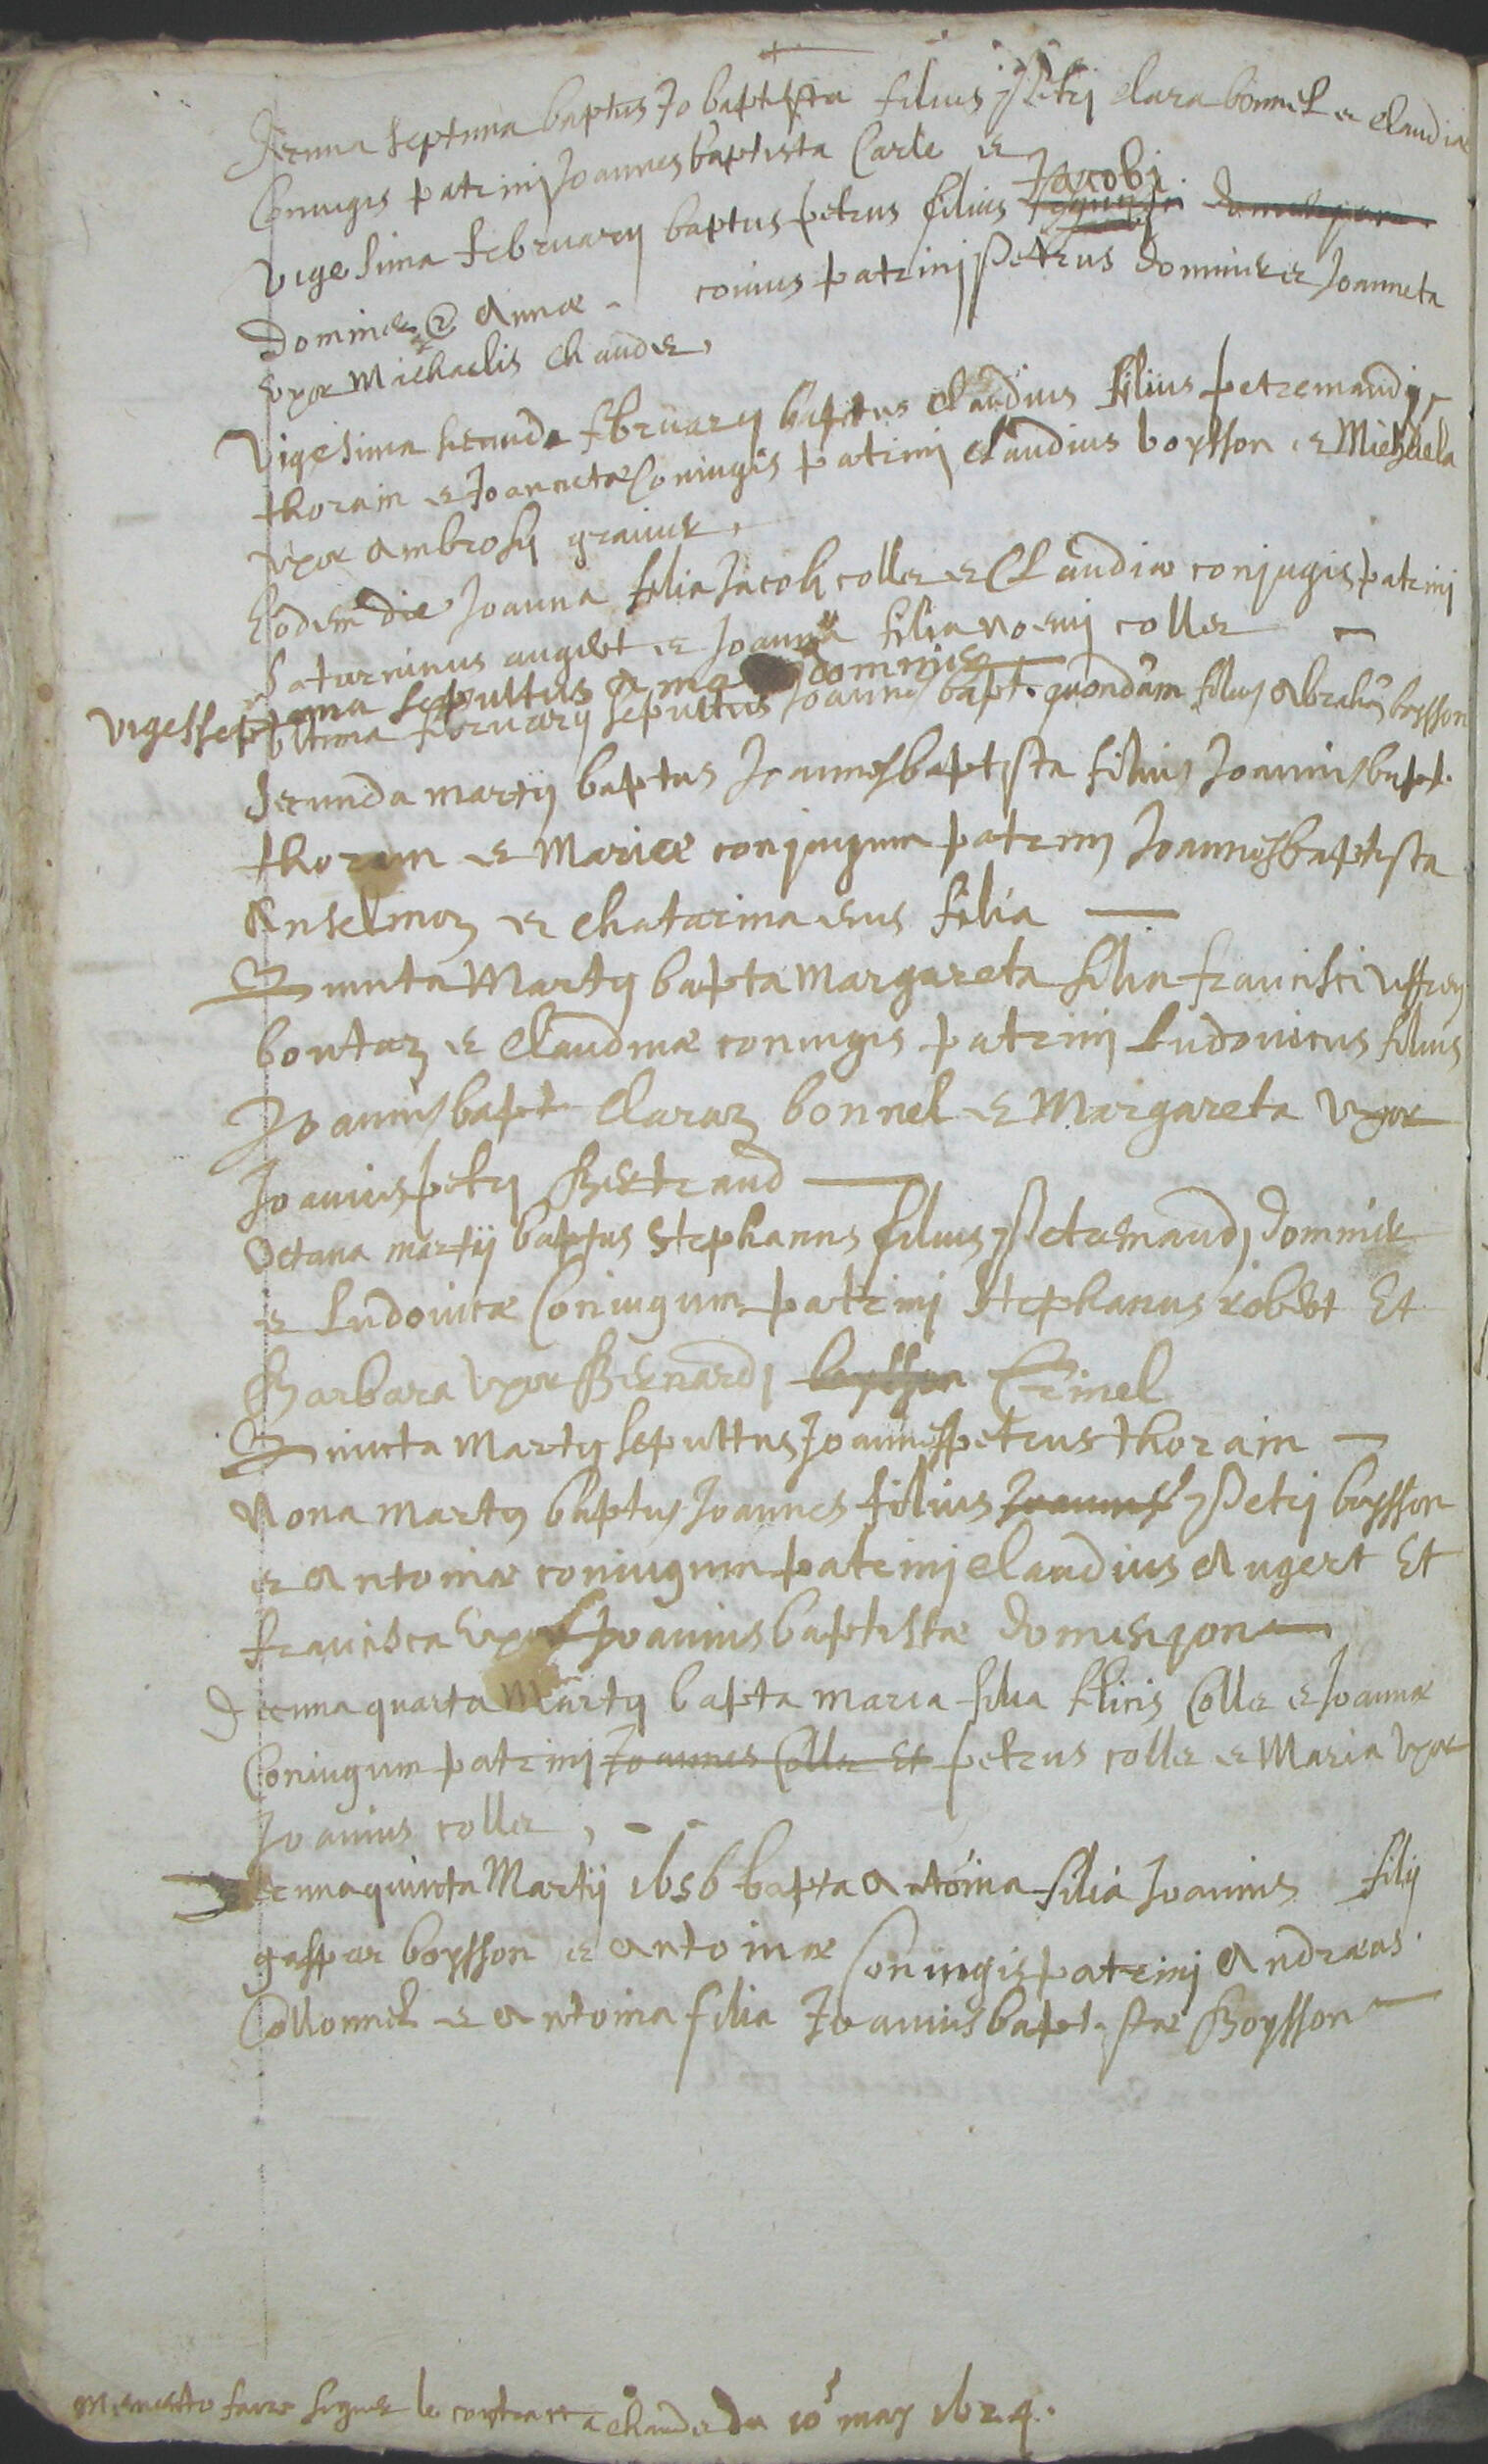 Decima septima baptus Jo baptista filius Petrj Clara bonnel et Claudiæ
Coniugis patrinj Joannes baptista Carle et
Vigesima februarij baptus petrus filius Jacobj
Dominez et Annæ conius patrinj Petrus Dominiez et Joanneta
vxor Michaelis Chaudet,
Vigesima secunda februarij baptus Claudius filius petremandj
thorain et Joannetæ Coniugis patrinj Claudius boysson et Michaela
vxor Ambrosij
Eodem die Joanna filia Jacobj collet et Claudiæ conjugis patrinj
Saturninus augert et Joanna filia collet
Vigessepti ima sepultus dominiez
Ultima februarij sepultus Joannes bapt. quondam filius Abrahæ boysson
Secunda martij baptus Joannesbaptista filius Joannisbapt.
thorain et Mariæ conjugum patrinj Joannesbaptista
Anselmoz et Chatarina eius filia
Quinta Martij bapta Margareta filia francisci
bontaz et Claudinæ coniugis patrinj Ludovicus filius
Joannisbapt Claraz bonnel et Margareta vxor
Joannispetrj Bertrand
Octava martij baptus Stephanus filius Petremandj Dominiet
et Ludovicæ Coniugum patrinj Stephanus robert Et
Barbara vxor Bernardj boysson Crinel
Quinta Martij sepultus Joannespetrus thorain
Nona Martij baptus Joannes filius Joannis Petrj boysson
et Antoinæ coniugum patrinj Claudius Augert Et
francisca vxor Joannisbaptistæ domenjon
Decimaquarta Martij bapta maria filia felicis Collet et Joannæ
Coniugum patrinj Joannes Collet Et petrus collet et Maria vxor
Joannis collet,
Decimaquinta Martij 1656 bapta Antoina filia Joannis filij
gaspar boysson et Antoinæ Coniugis patrinj Andræas
Collonnel et Antoina filia Joannisbaptistæ Boysson
Memento faire signer le contract a chaudet du 10 may 1624.